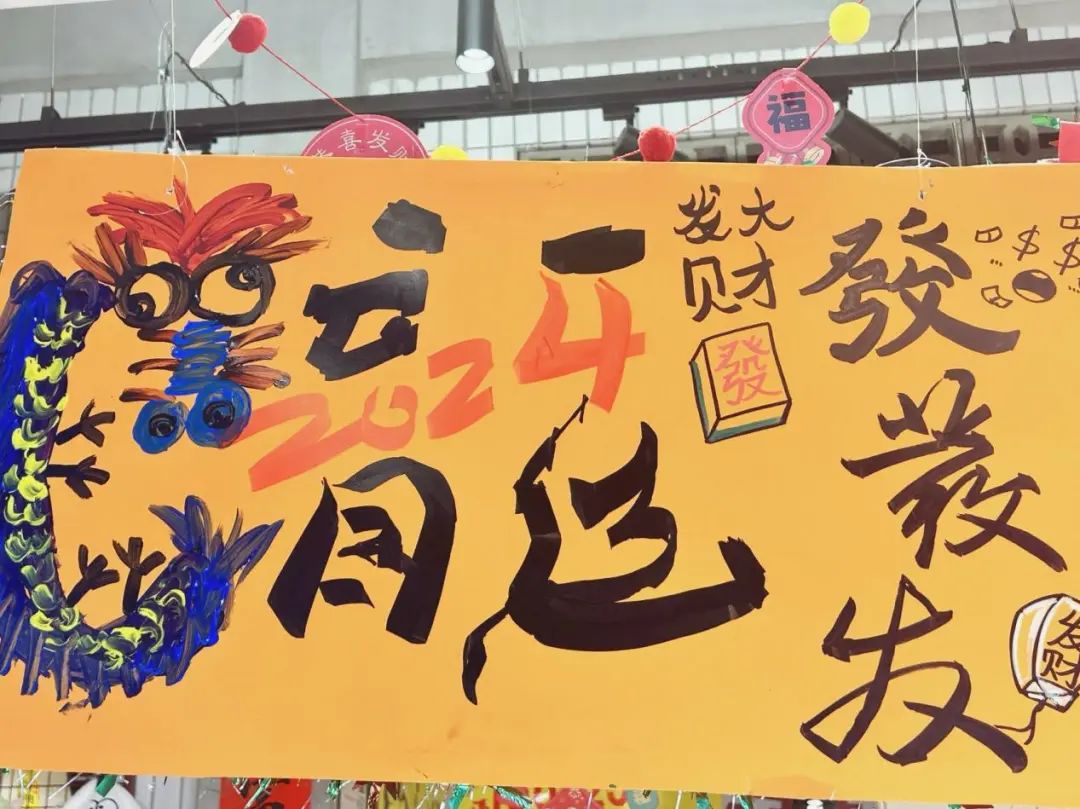 喜发财
福
龍
2024
发大
财
發
發
$ $
發
发
发财